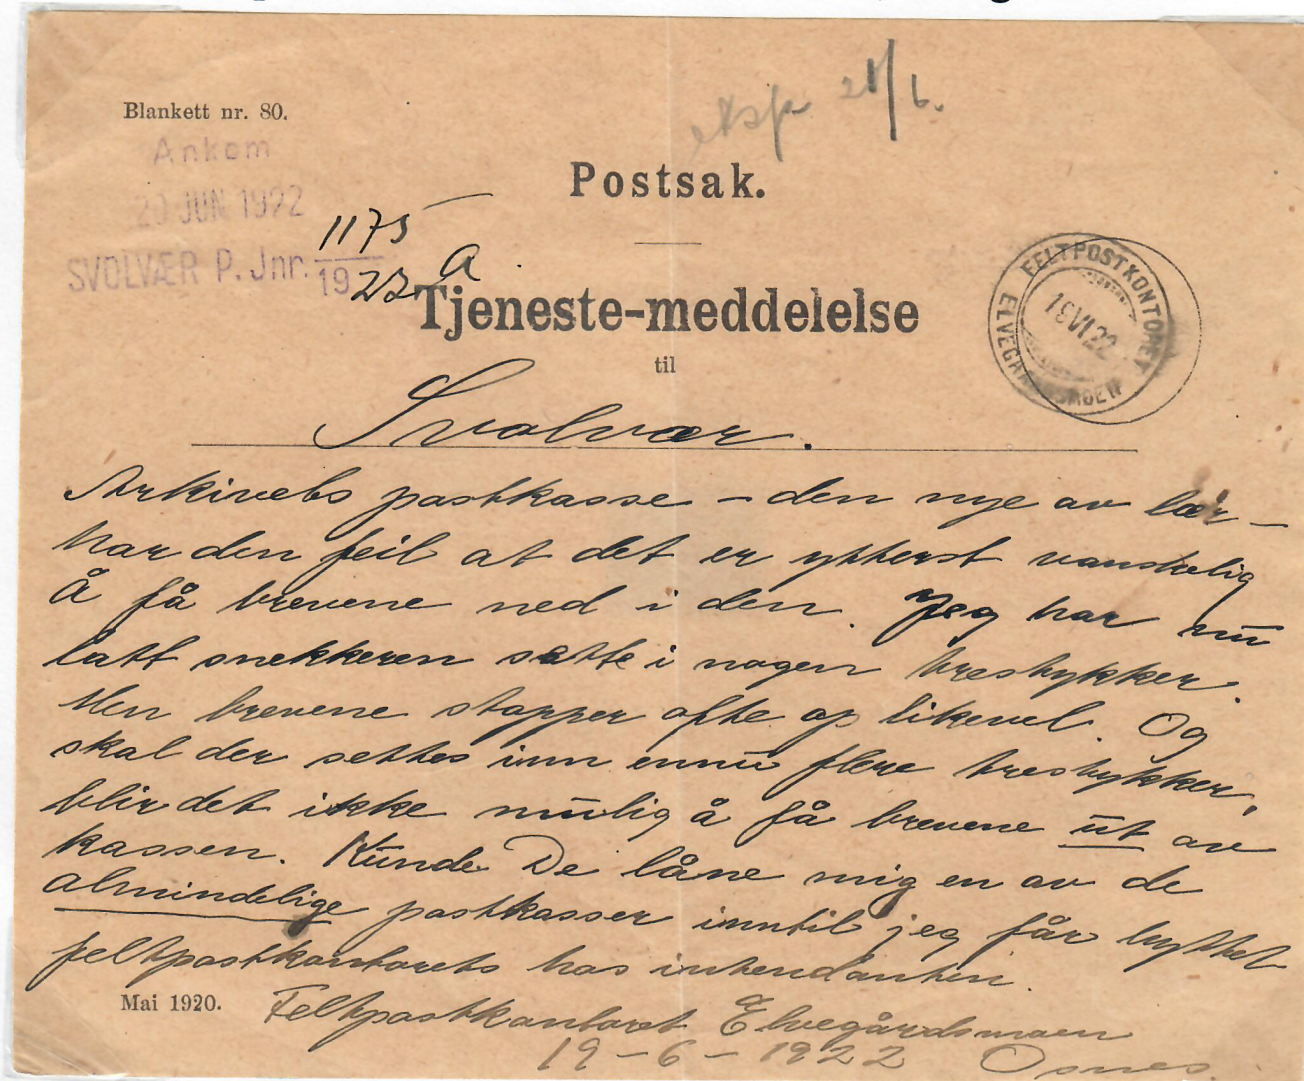 eksp 21/6.
Blankett nr. 80.
Ankom
20 JUN 1922
SVOLVÆR P. Jnr. 1175/1922 A.
Postsak.
FELTPOSTKONTORET
19 VI 22
ELVEGAARDSMOEN
Tjeneste-meddelelse
til
Svolvær.
Arkivets postkasse – den nye av lær –
har den feil at det er ytterst vanskelig
å få brevene ned i den. Jeg har nu
latt snekkeren sætte i nogen trestykker.
Men brevene stopper ofte op likevel. Og
skal der settes inn ennu flere trestykker,
blir det ikke mulig å få brevene ut av
kassen. Kunde De låne mig en av de
almindelige postkasser inntil jeg får byttet
feltpostkontorets hos intendanten.
Mai 1920.
Feltpostkontoret Elvegårdsmoen
19-6-1922 Osnes.